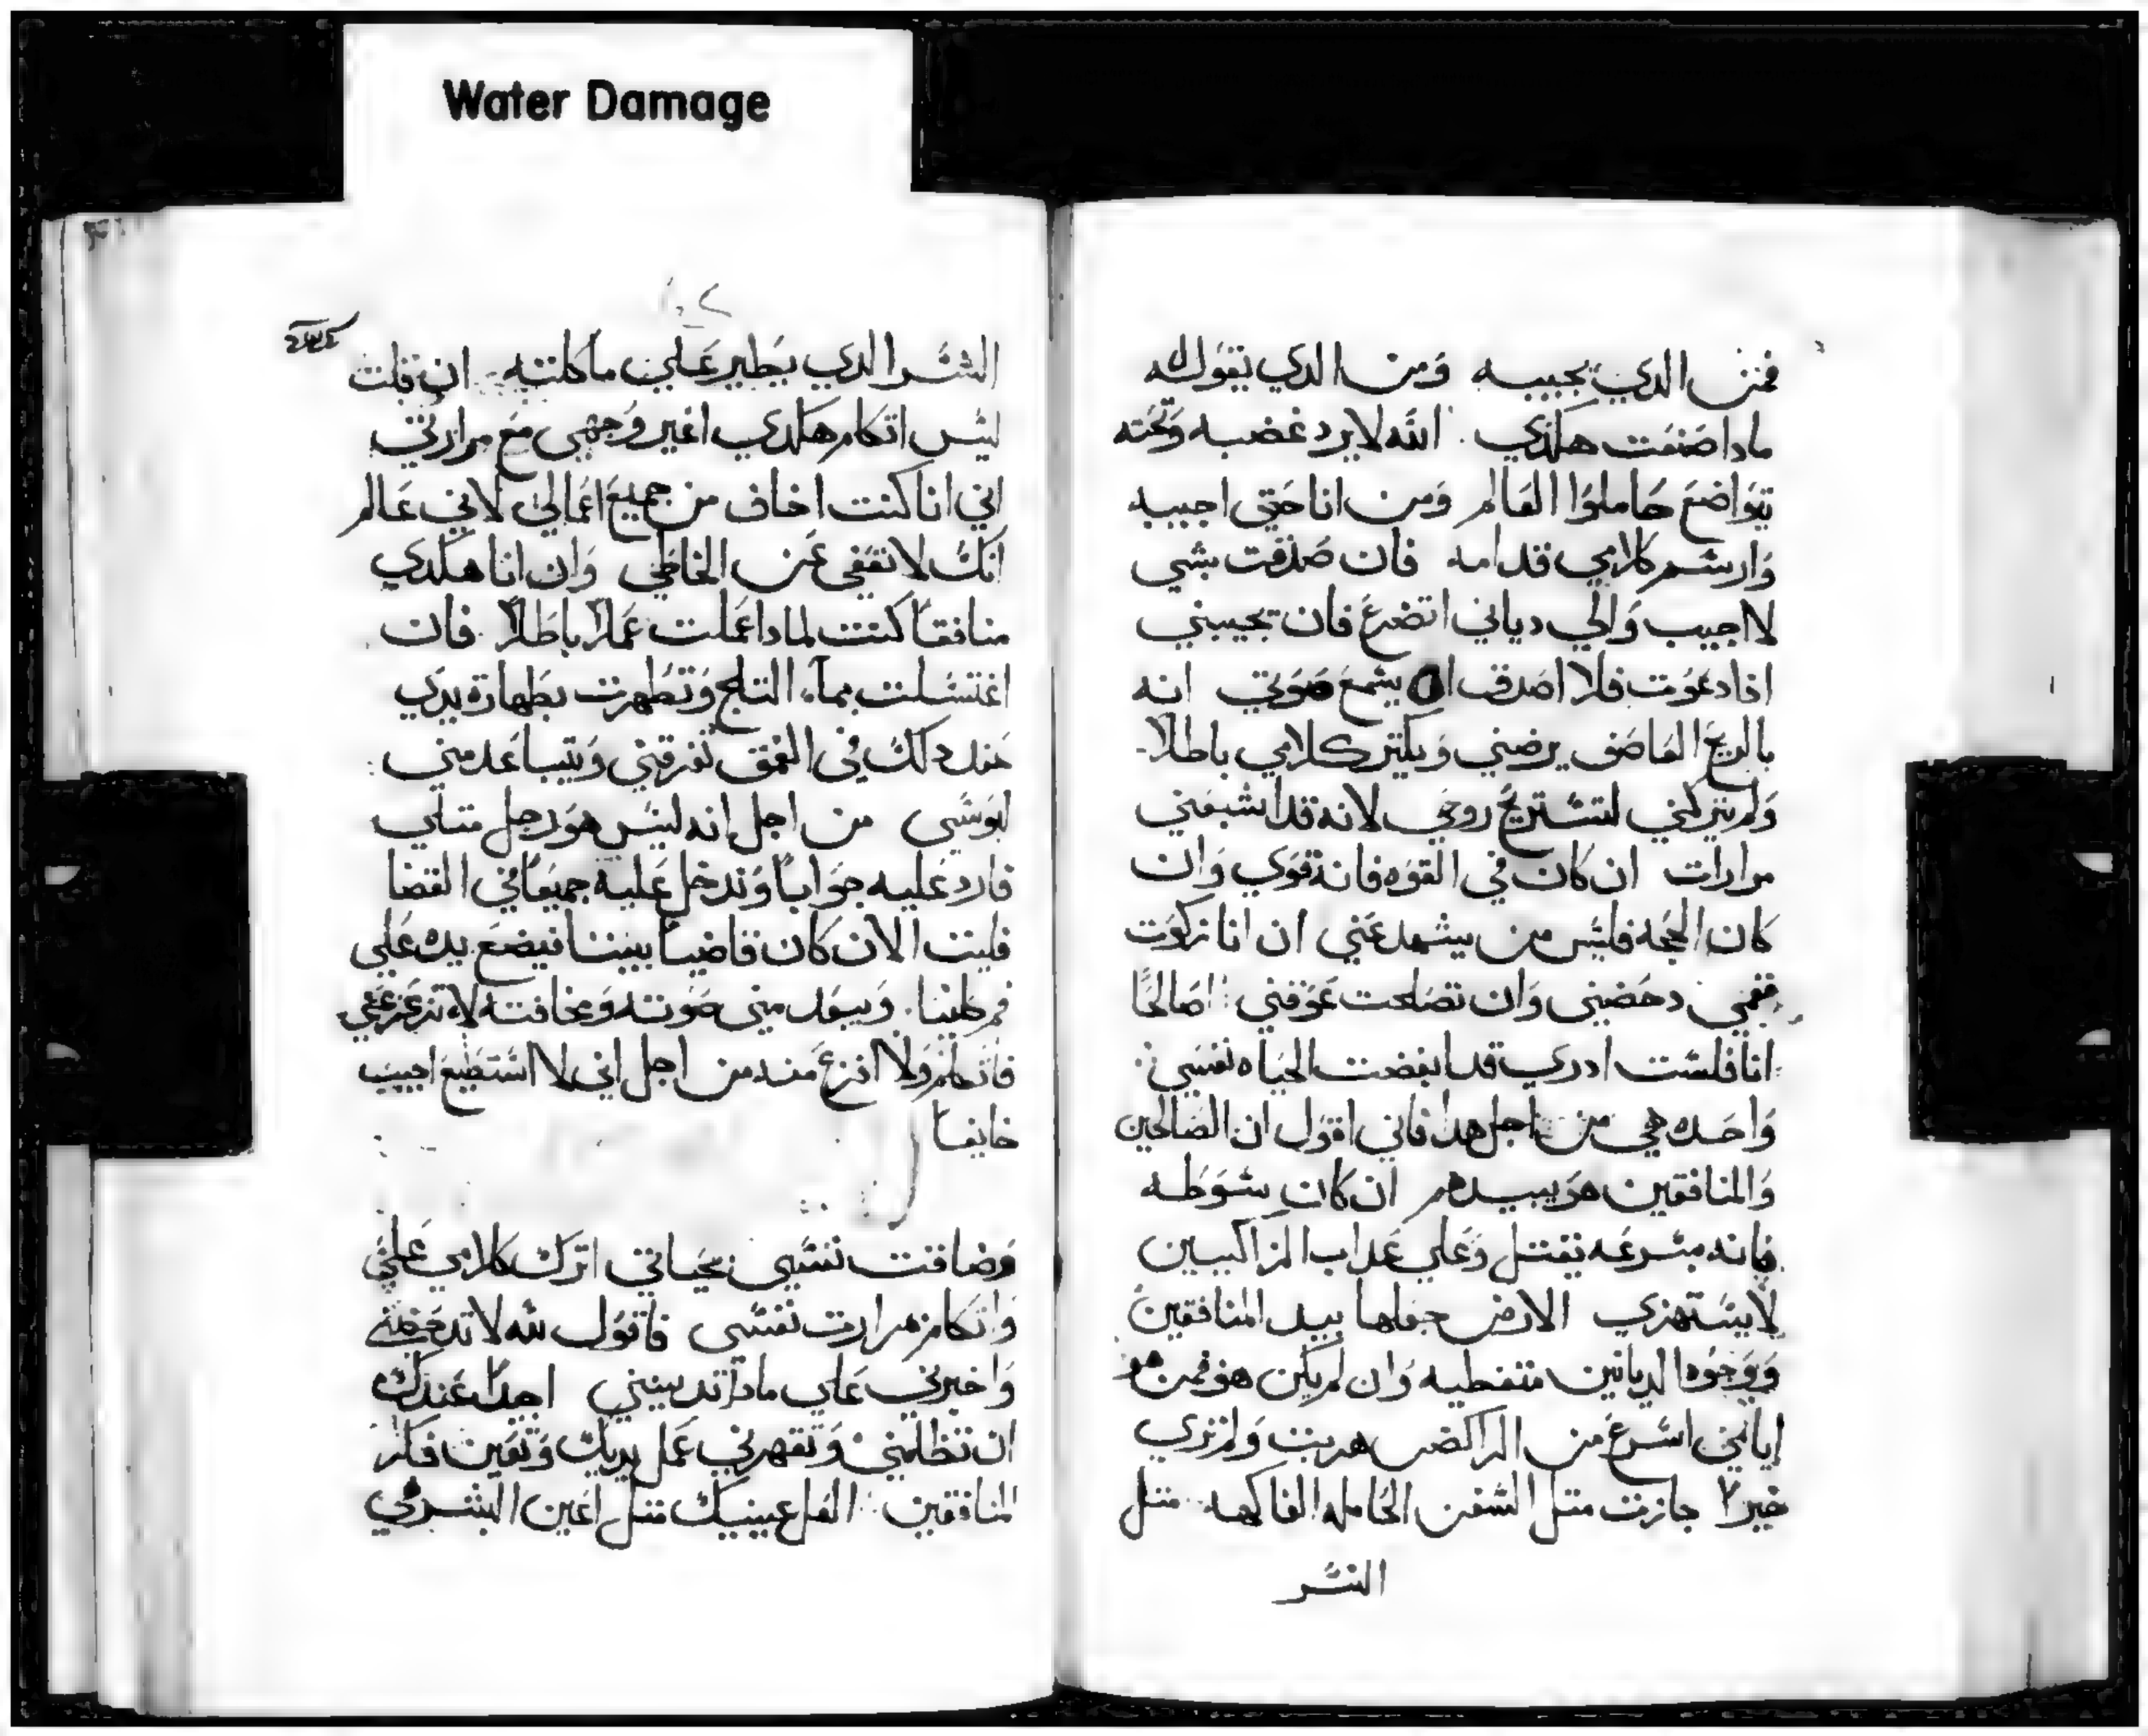 Water Damage
فمن الدي يجيبه ومن الدي يقول له
مادا صنعت هكدي الله لا يرد غضبه وتحته
يتواضع حاملوا العالم ومن انا حتي اجيبه
وارسم كلامي قدامه فان صدقت بشي
لا اجيب والي دياني اتضرع فان يجيبني
ادا دعوت فلا اصدق ان يسمع صوتي انه
بالريح العاصف يرضني ويكتر كلامي باطلا
ولم يتركني لتستريح روحي لانه قد اشبعني
مرارات ان كان في القوه فانه قوي وان
كان الحجه فليس من يشهد عني ان انا تزكوت
ففمي دحضني وان تصلحت عوقني اصالحًا
انا فلست ادري قد ابغضت الحياه نفسي
واحده هي من اجل هدا فاني اقول ان الصالحين
والمنافقين هو يبيدهم ان كان بسوطه
فانه بسرعه يقتل وعلي عداب المزاكيين
لا يستهزي الارض جعلها بيد المنافقين
ووجوه الديانين متغطيه وان لم يكن هو فمن هو
ايامي اسرع من الراكض هربت ولم تري
خيرا جازت متل السفن الحامله الفاكهه متل
النسر
النسر الدي يطير علي ماكلته ان قلت
ليس اتكلم هكدي اغير وجهي مع مرارتي
اني انا كنت اخاف من جميع اعمالي لاني عالم
انك لا تعفي عن الخاطي وان انا هكدي
منافقًا كنت لمادا عملت عملًا باطلًا فان
اغتسلت بمآء التلج وتطهرت بطهارة يدي
عند دلك في العمق تغرقني ويتباعد مني
لبوسي من اجل انه ليس هو رجل متلي
فارد عليه جوابًا وندخل علية جميعًا في القضا
فليت الان كان قاضيًا بيننا فيضع يده علي
فم كلينا ويبعد مني صوته ومخافته لا تزعزعني
فاتكلم ولا افزع منه من اجل اني لا استطيع اجيب
خايفًا
وضاقت نفسي بحياتي اترك كلامي علي
واتكلم مرارت نفسي فاقول لله لا تدحضني
واخبرني علي مادا تدينني اجيدًا عندك
ان تظلمني وتقهرني عمل يديك وتعين فكر
المنافقين العل عينيك متل اعين البشر هي